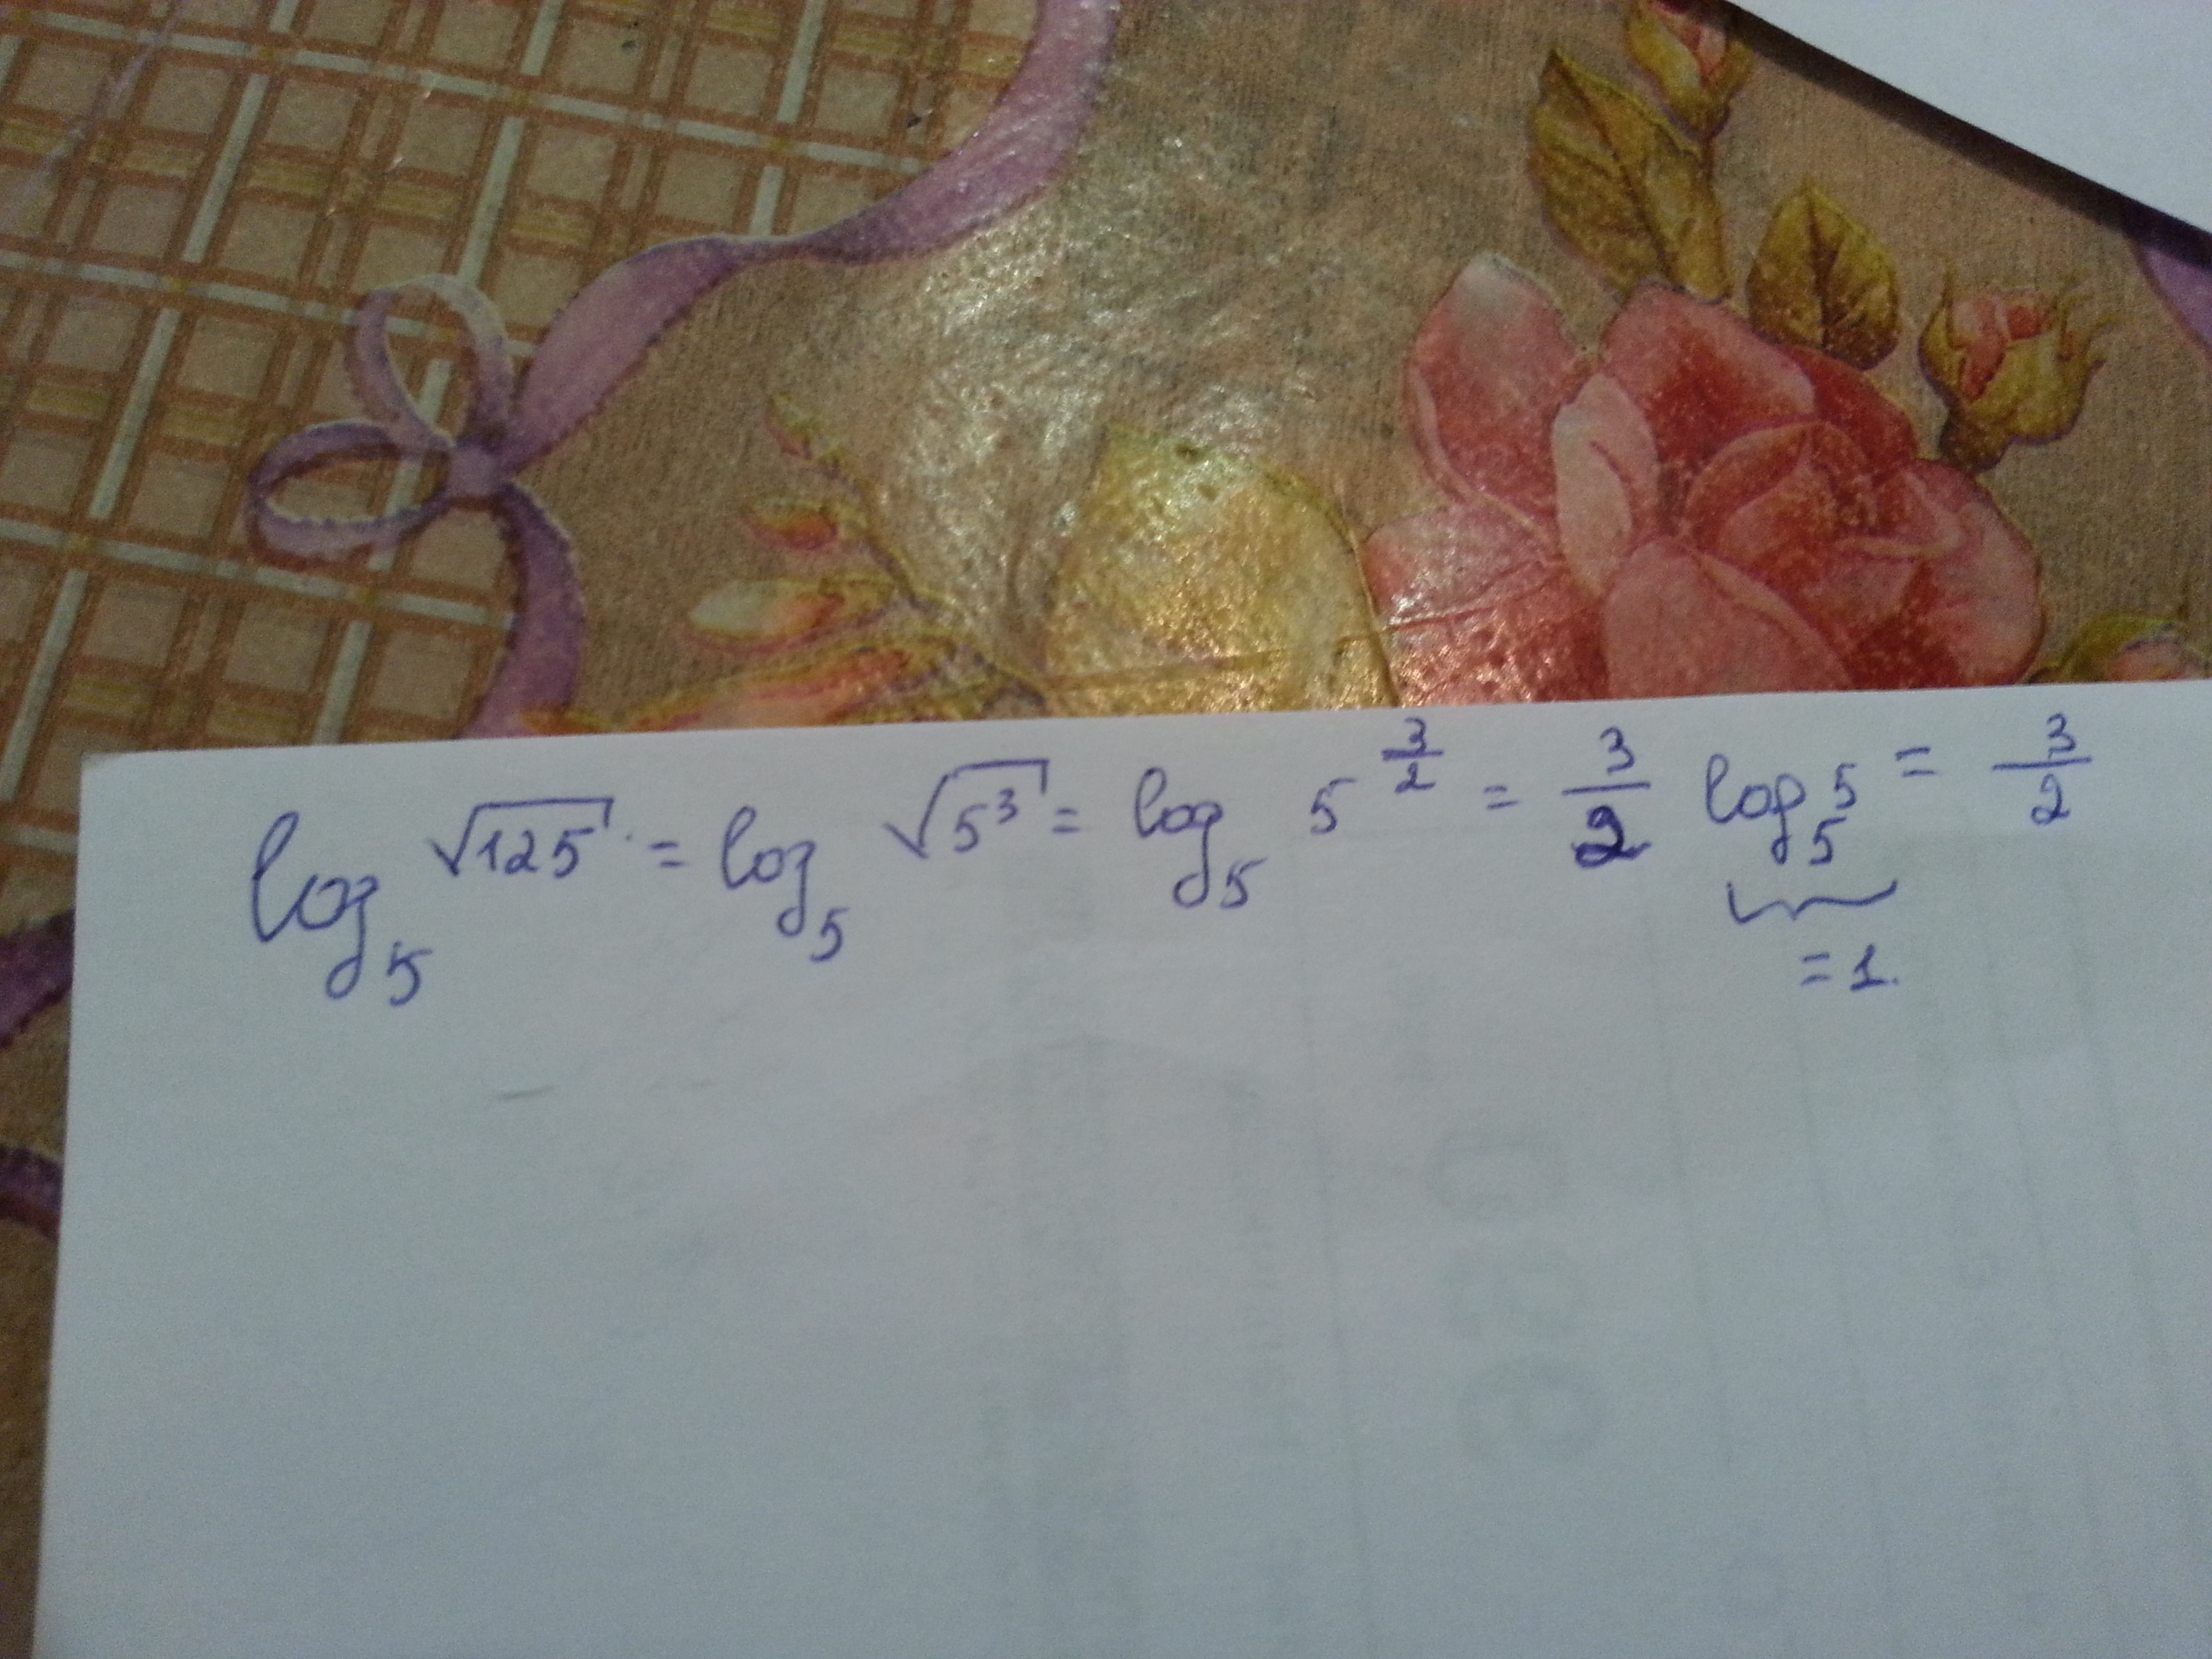 log₅ √125 = log₅ √5³ = log₅ 5^(3/2) = 3/2 log₅ 5 = 3/2
= 1.